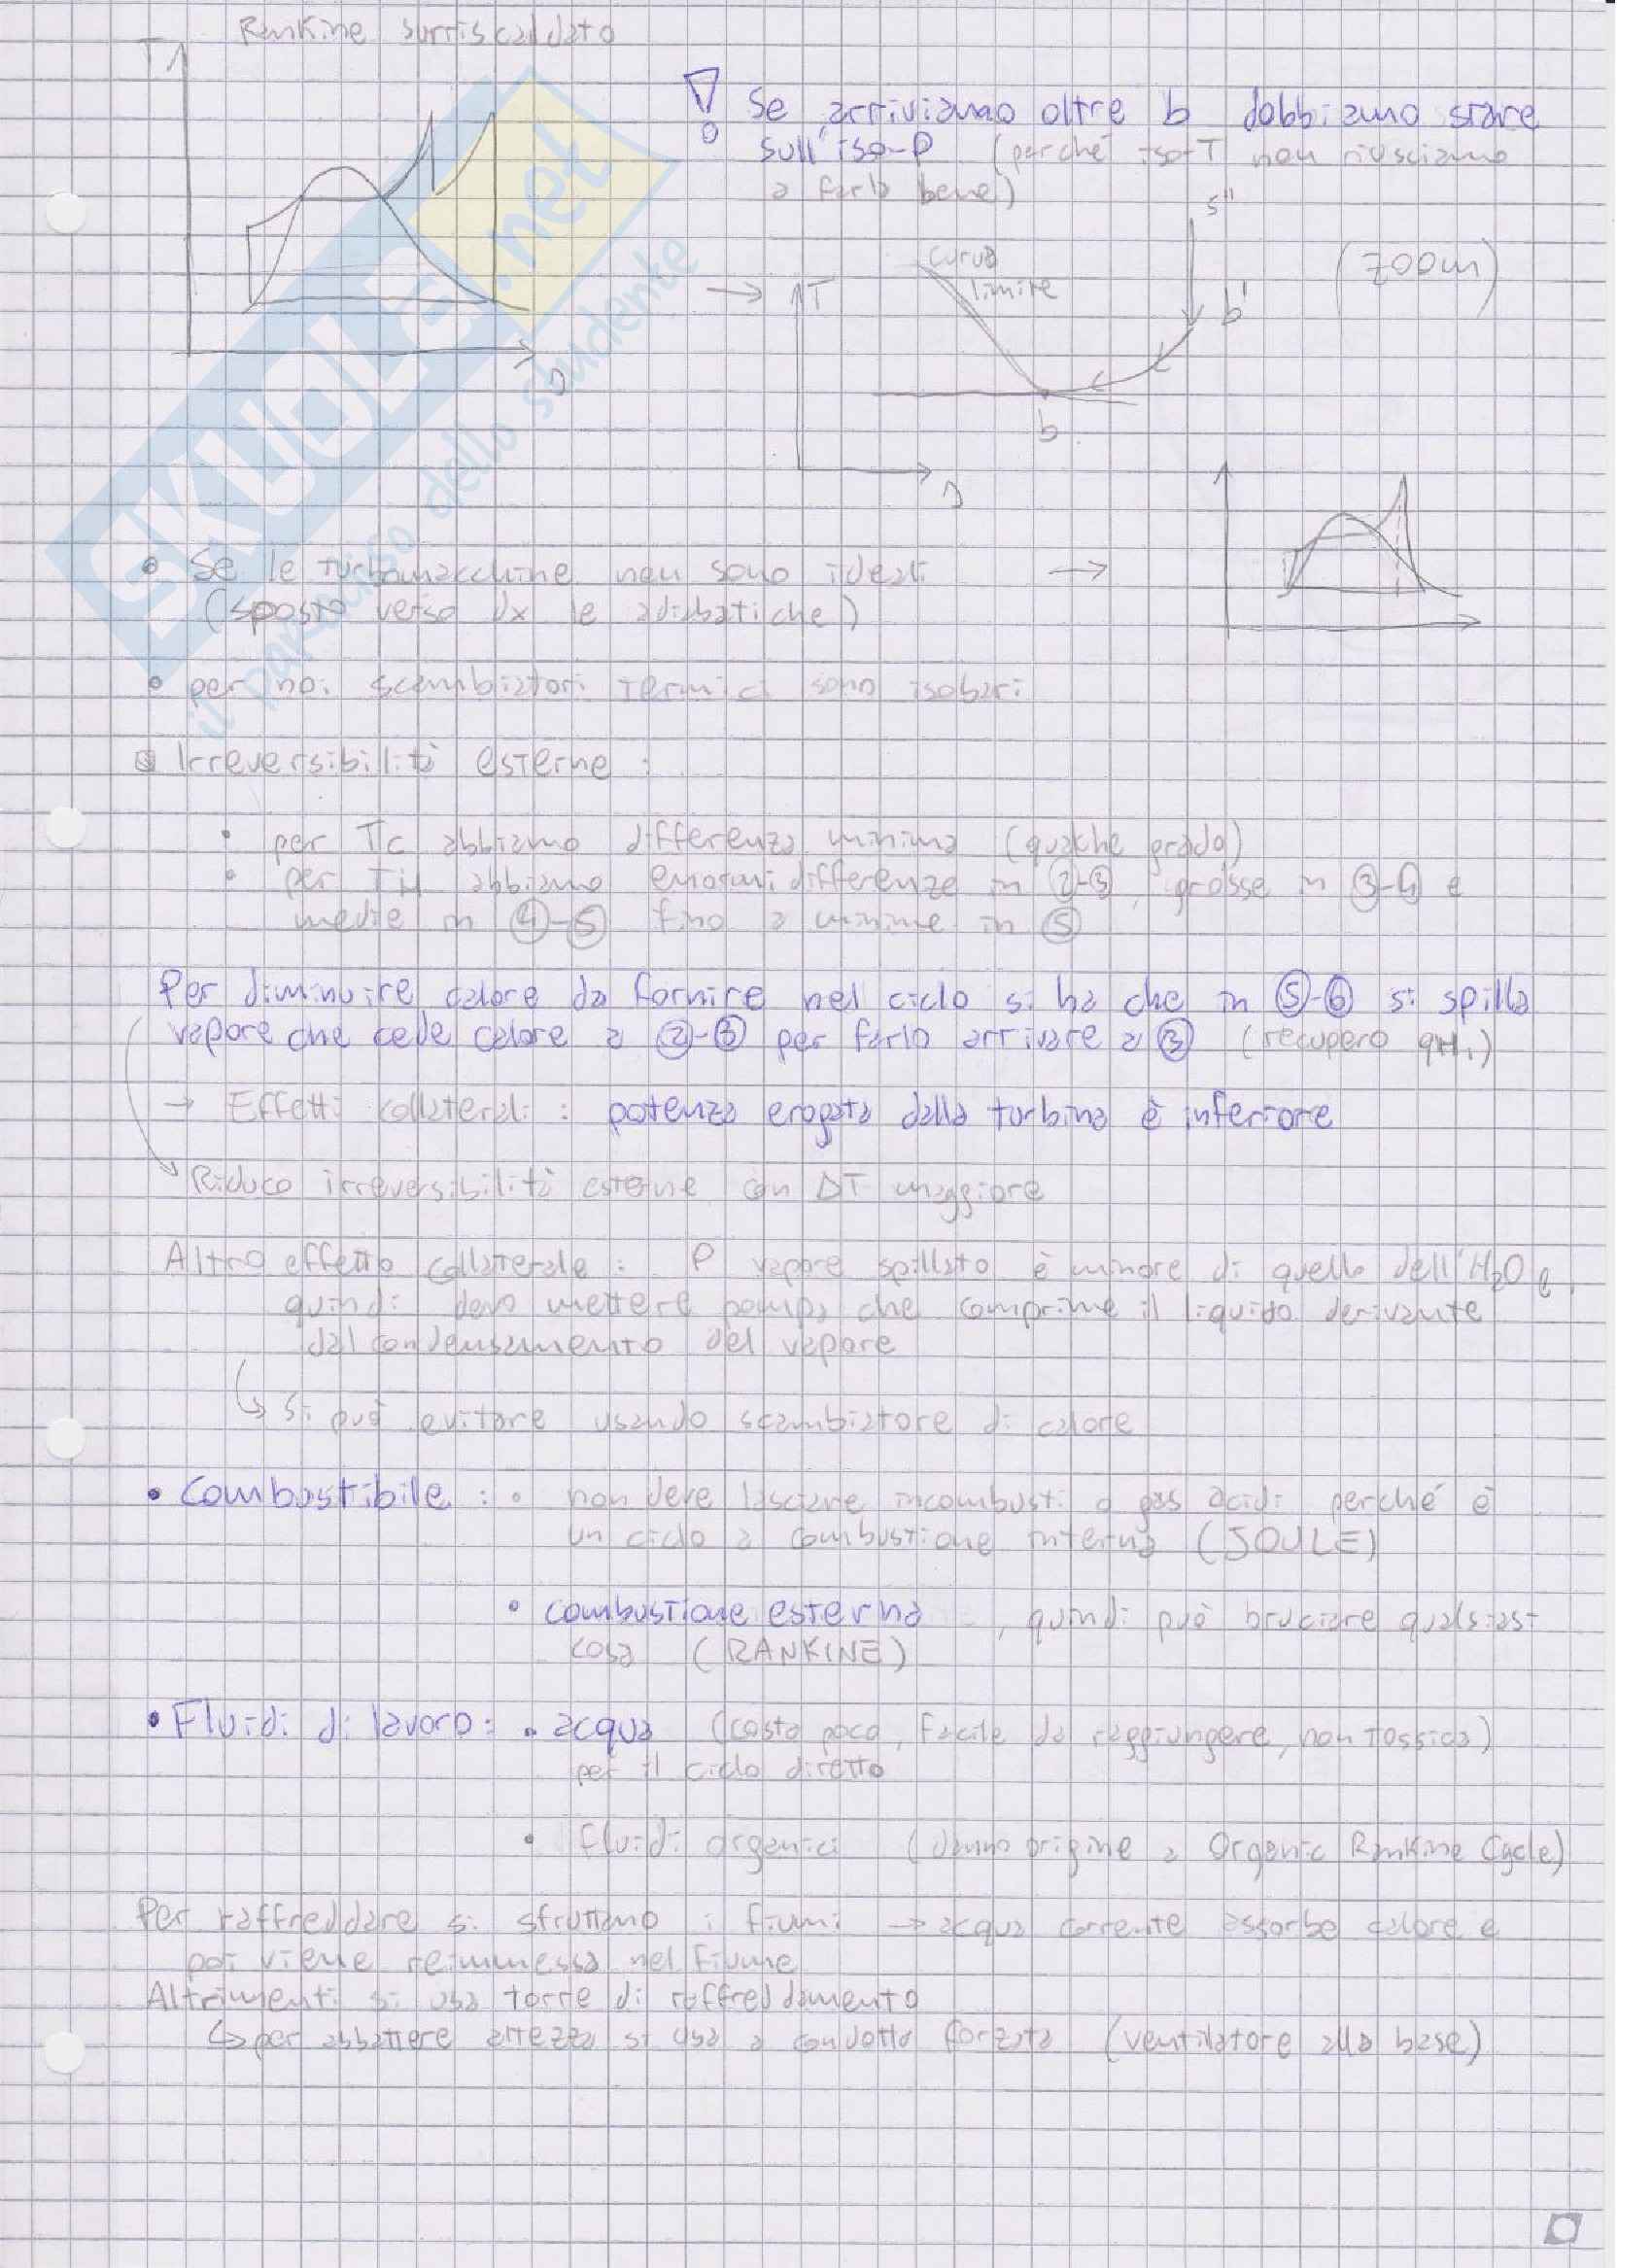 Rankine surriscaldato
T
Se arriviamo oltre b dobbiamo stare
sull'iso-P (perché iso-T non riusciamo
a farlo bene)
s
curva
limite
T
5"
b'
(zoom)
b
s
SKUOLA.net
il paradiso dello studente
• Se le turbomacchine non sono ideali →
(sposto verso dx le adiabatiche)
• per noi scambiatori termici sono isobari
Irreversibilità esterne :
• per Tc abbiamo differenza minima (qualche grado)
• per TH abbiamo enormi differenze in ②-③, grosse in ③-④ e
medie in ④-⑤ fino a minime in ⑤
Per diminuire calore da fornire nel ciclo si ha che in ⑤-⑥ si spilla
vapore che cede calore a ②-③ per farlo arrivare a ③ (recupero qH,)
→ Effetti collaterali : potenza erogata dalla turbina è inferiore
Riduco irreversibilità esterne con ΔT maggiore
Altro effetto collaterale : P vapore spillato è minore di quella dell'H2O e
quindi devo mettere pompa che comprime il liquido derivante
dal condensamento del vapore
↳ Si può evitare usando scambiatore di calore
• Combustibile : • non deve lasciare incombusti o gas acidi perché è
un ciclo a combustione interna (JOULE)
• combustione esterna , quindi può bruciare qualsiasi
cosa (RANKINE)
• Fluidi di lavoro : • acqua (costa poco, facile da raggiungere, non tossica)
per il ciclo diretto
• fluidi organici (danno origine a Organic Rankine Cycle)
Per raffreddare si sfruttano i fiumi → acqua corrente assorbe calore e
poi viene reimmessa nel fiume
Altrimenti si usa torre di raffreddamento
↳ per abbattere altezza si usa a condotta forzata (ventilatore alla base)